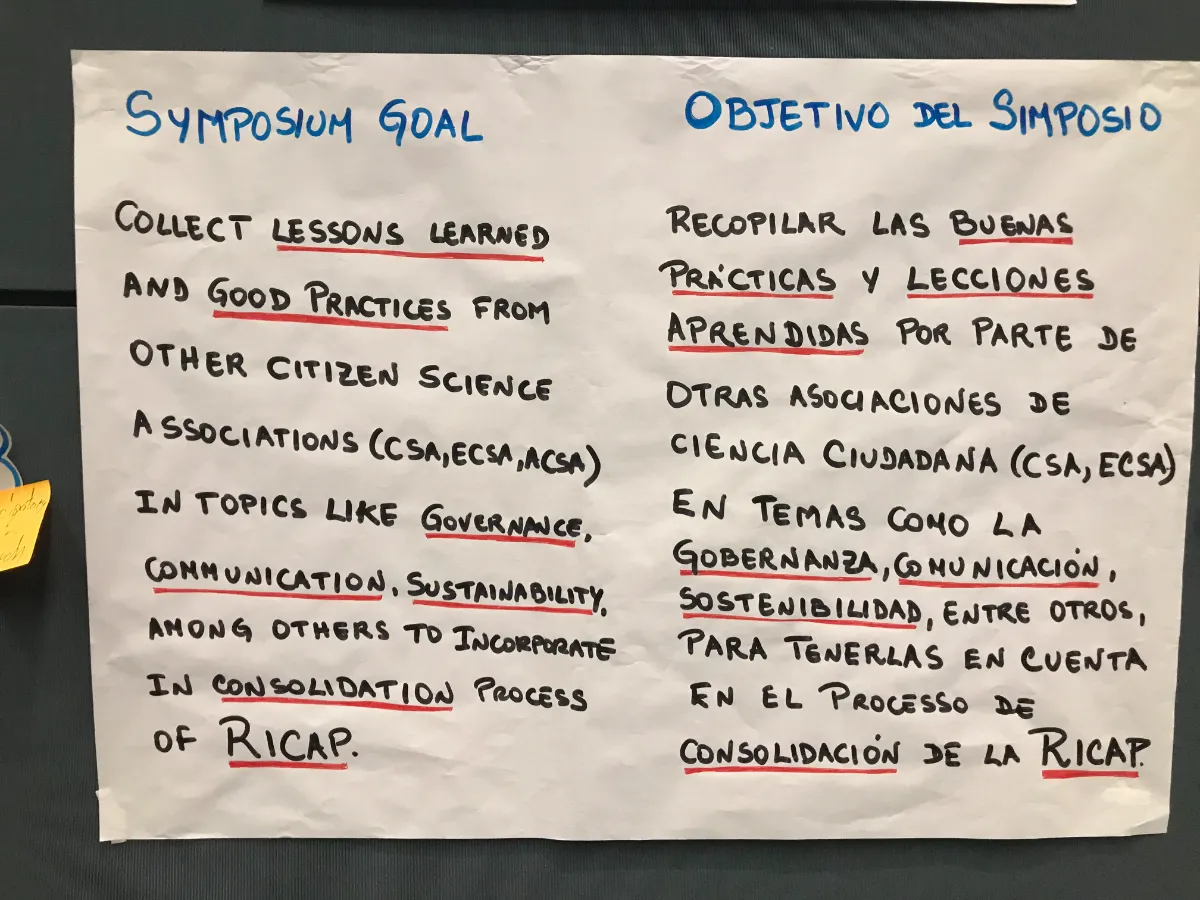 SYMPOSIUM GOAL
COLLECT LESSONS LEARNED
AND GOOD PRACTICES FROM
OTHER CITIZEN SCIENCE
ASSOCIATIONS (CSA, ECSA, ACSA)
IN TOPICS LIKE GOVERNANCE,
COMMUNICATION, SUSTAINABILITY,
AMONG OTHERS TO INCORPORATE
IN CONSOLIDATION PROCESS
OF RICAP.
OBJETIVO DEL SIMPOSIO
RECOPILAR LAS BUENAS
PRÁCTICAS Y LECCIONES
APRENDIDAS POR PARTE DE
OTRAS ASOCIACIONES DE
CIENCIA CIUDADANA (CSA, ECSA)
EN TEMAS COMO LA
GOBERNANZA, COMUNICACIÓN,
SOSTENIBILIDAD, ENTRE OTROS,
PARA TENERLAS EN CUENTA
EN EL PROCESSO DE
CONSOLIDACIÓN DE LA RICAP.